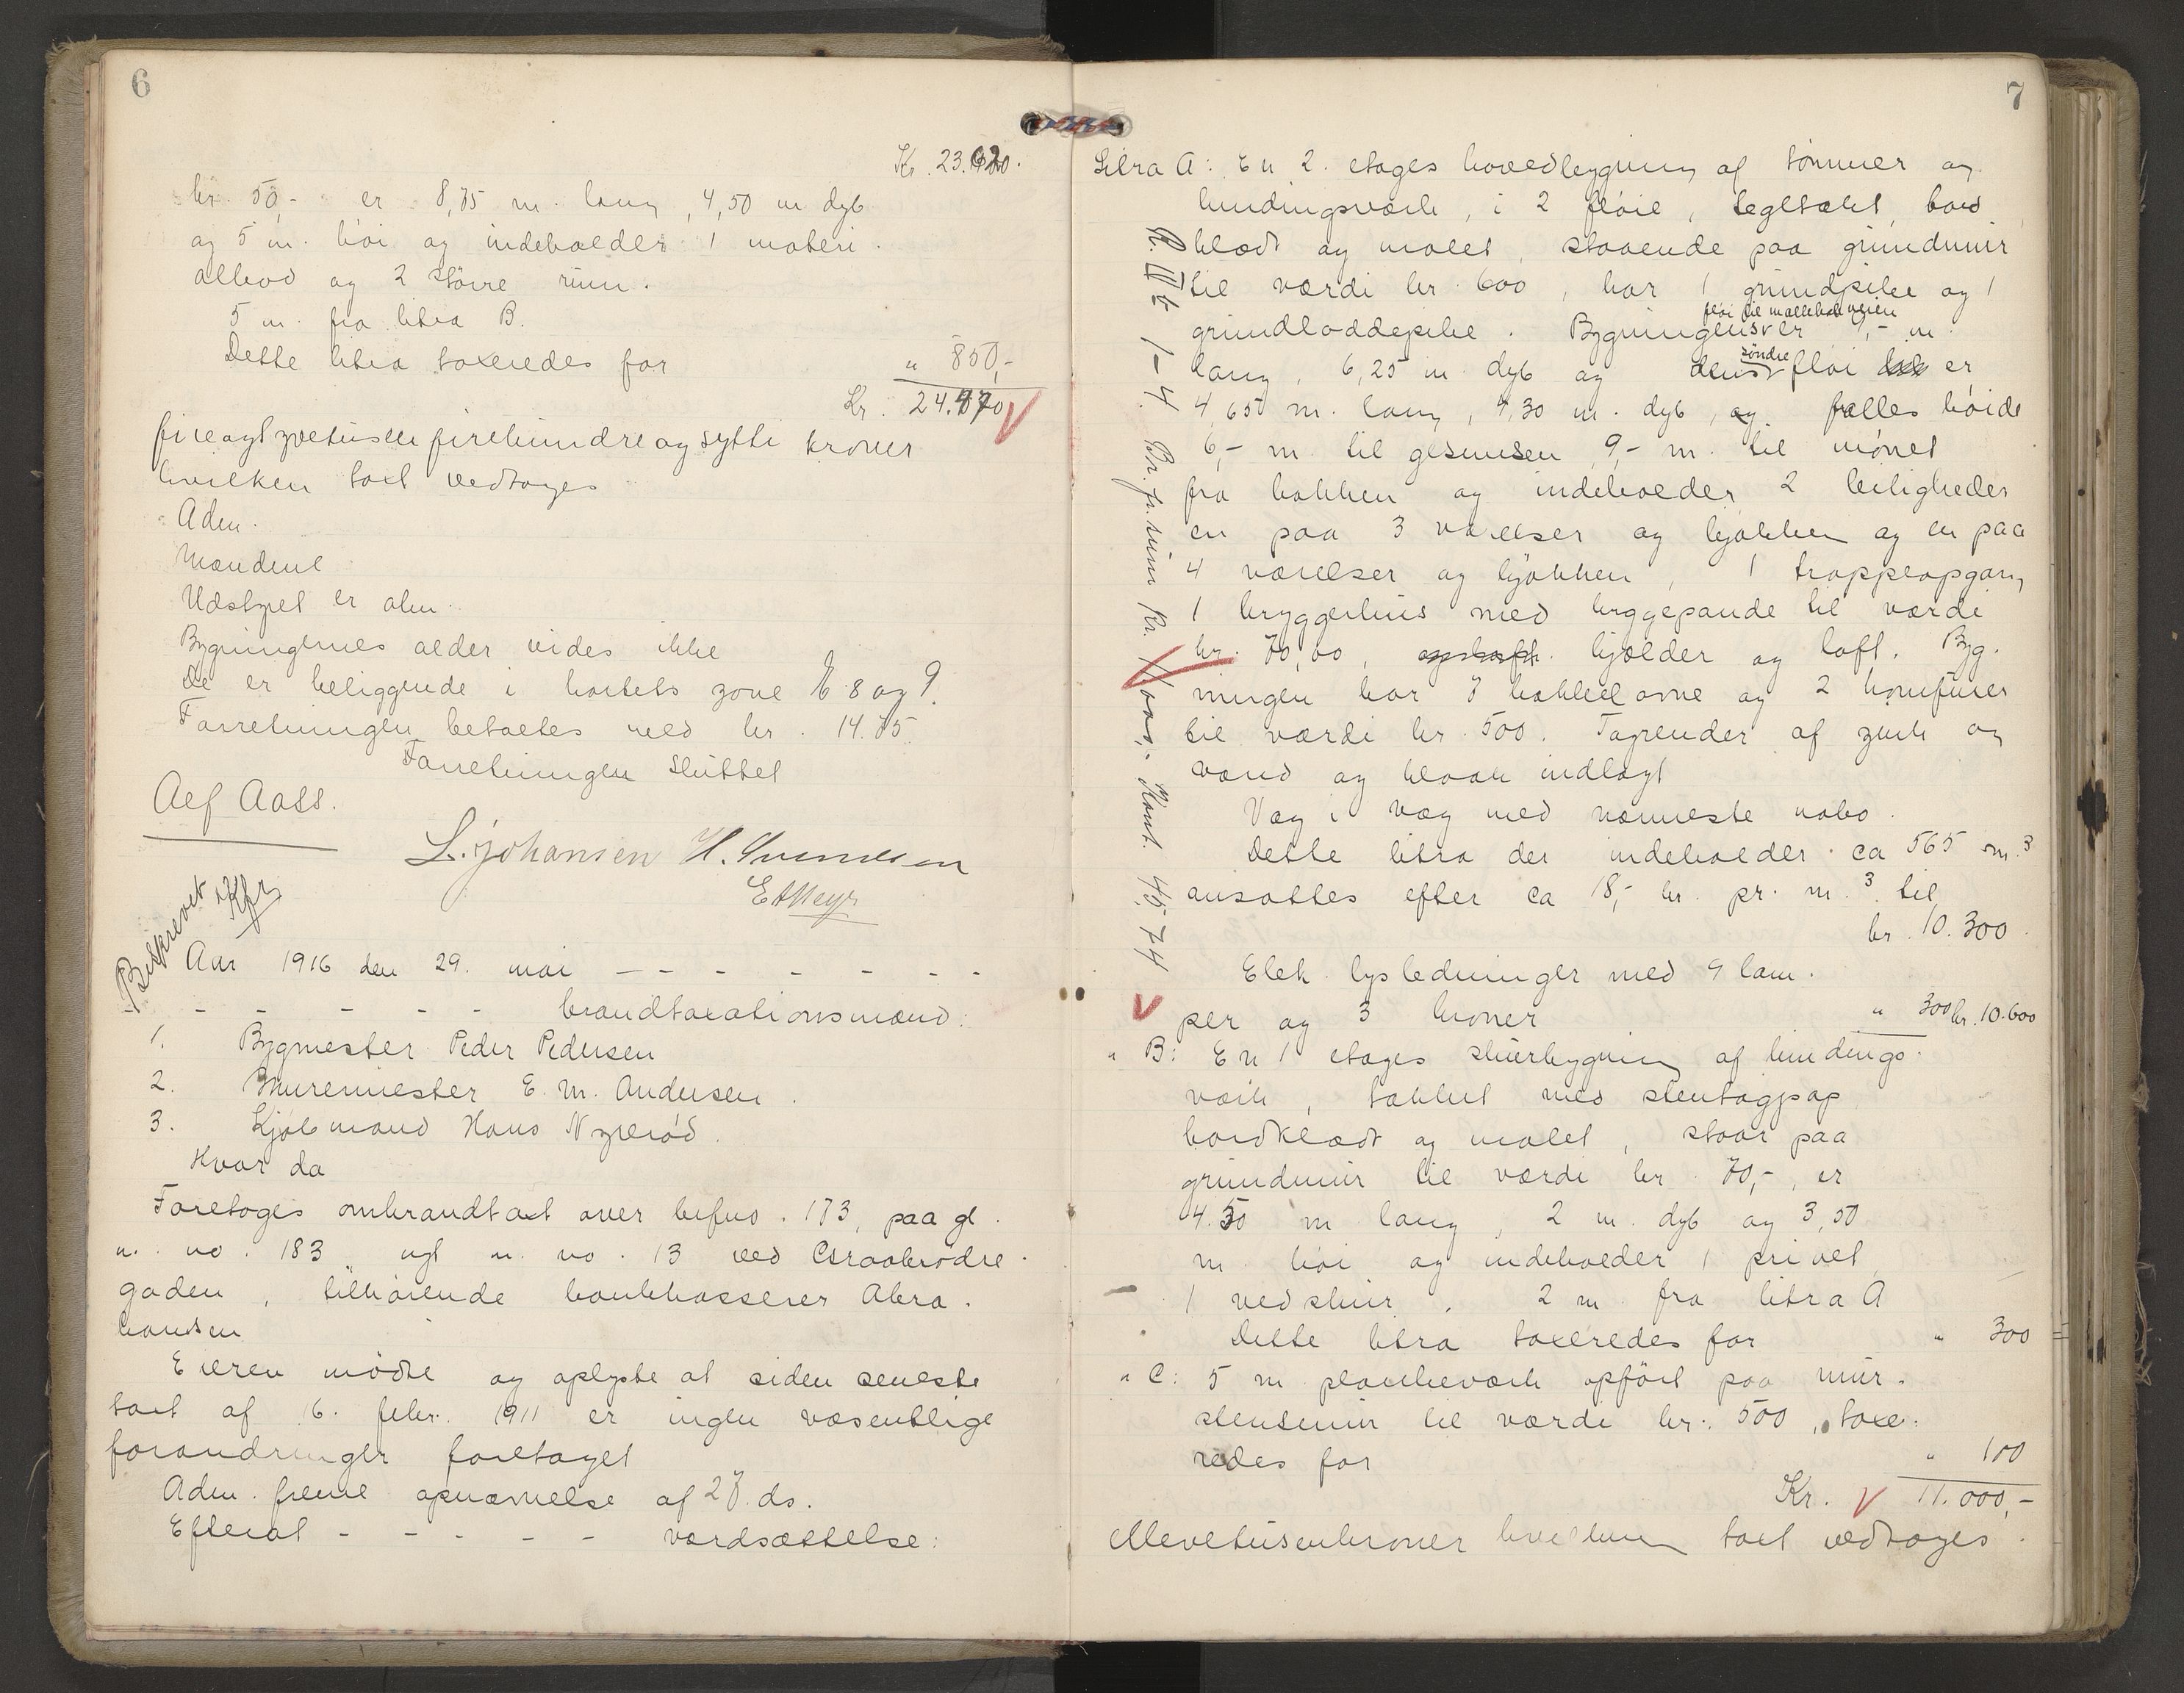 6
Kr. 23.620.
kr. 50,- er 8,75 m. lang, 4,50 m dyb
og 5 m. høi og indeholder 1 materi
albod og 2 större rum.
5 m. fra litra B.
Dette litra taxeredes for " 850,-
Kr. 24.470
fireogtyvetusen firehundreogsytti kroner
hvilken taxt vedtoges
Adm.
Mændene
Udstyret er alm.
Bygningernes alder vides ikke
De er beliggende i kartets zone E 8 og 9.
Forretningen betaltes med kr. 14.75
Forretningen sluttet
Alf Aass.
L. Johansen H. Svendsen
E A Meyr
Beskrevet Kfr
Aar 1916 den 29. mai - - - - - - -
- - - - - - brandtaxationsmænd:
1. Bygmester Peder Pedersen
2. Murermester E. M. Andersen.
3. Kjøbmand Hans Nyrerød.
Hvor da
Foretoges ombrandtaxt over bufno. 173, paa gl.
m. no. 183 nyt m. no. 13 ved Graabrødre
gaden, tilhørende bankkasserer Abra.
hamsen
Eieren mödte og oplyste at siden seneste
taxt af 16. febr. 1911 er ingen væsentlige
forandringer foretaget
Adm. freml opnævnelse af 27. ds.
Efterat - - - - - værdsættelse:
7
Litra A: En 2. etages hovedbygning af tømmer og
bindingsværk, i 2 fløie, tegltækt, bord
klædt og malet, staaende paa grundmur
til værdi kr. 600, har 1 grundpibe og 1
fløi til møllebakveien
grundloddepibe. Bygningens er 9,- m.
søndre
lang, 6,25 m dyb og dens fløi er
4,65 m. lang, 4,30 m. dyb, og fælles høide
6,- m til gesimsen 9,- m. til mønet
fra bakken og indeholder 2 leiligheder
en paa 3 værelser og kjøkken og en paa
4 værelser og kjøkken, 1 trappeopgang
1 bryggerhus med bryggepande til værdi
kr. 70,00, kjælder og loft. Byg.
ningen har 7 kakkelovne og 2 komfurer
til værdi kr. 500. Tagrender af zink og
vand og kloak indlagt
Væg i væg med nærmeste nabo.
Dette litra der indeholder ca 565 m.3
ansattes efter ca 18,- kr. pr. m.3 til
kr. 10.300.
Elek. lysledninger med 9 lam.
per og 3 kroner " 300 kr. 10.600
" B: En 1 etages skurbygning af bindings.
værk, tækket med stentagpap
bordklædt og malet, staar paa
grundmur til værdi kr. 70,-, er
4.50 m lang, 2 m. dyb og 3,50
m høi og indeholder 1 privet
1 vedskur. 2 m fra litra A
Dette litra taxeredes for " 300
" C: 5 m plankeværk opført paa mur.
stensmur til værdi kr. 500, taxe.
redes for " 100
Kr. 11.000,-
Ellevetusenkroner hvilken taxt vedtoges.